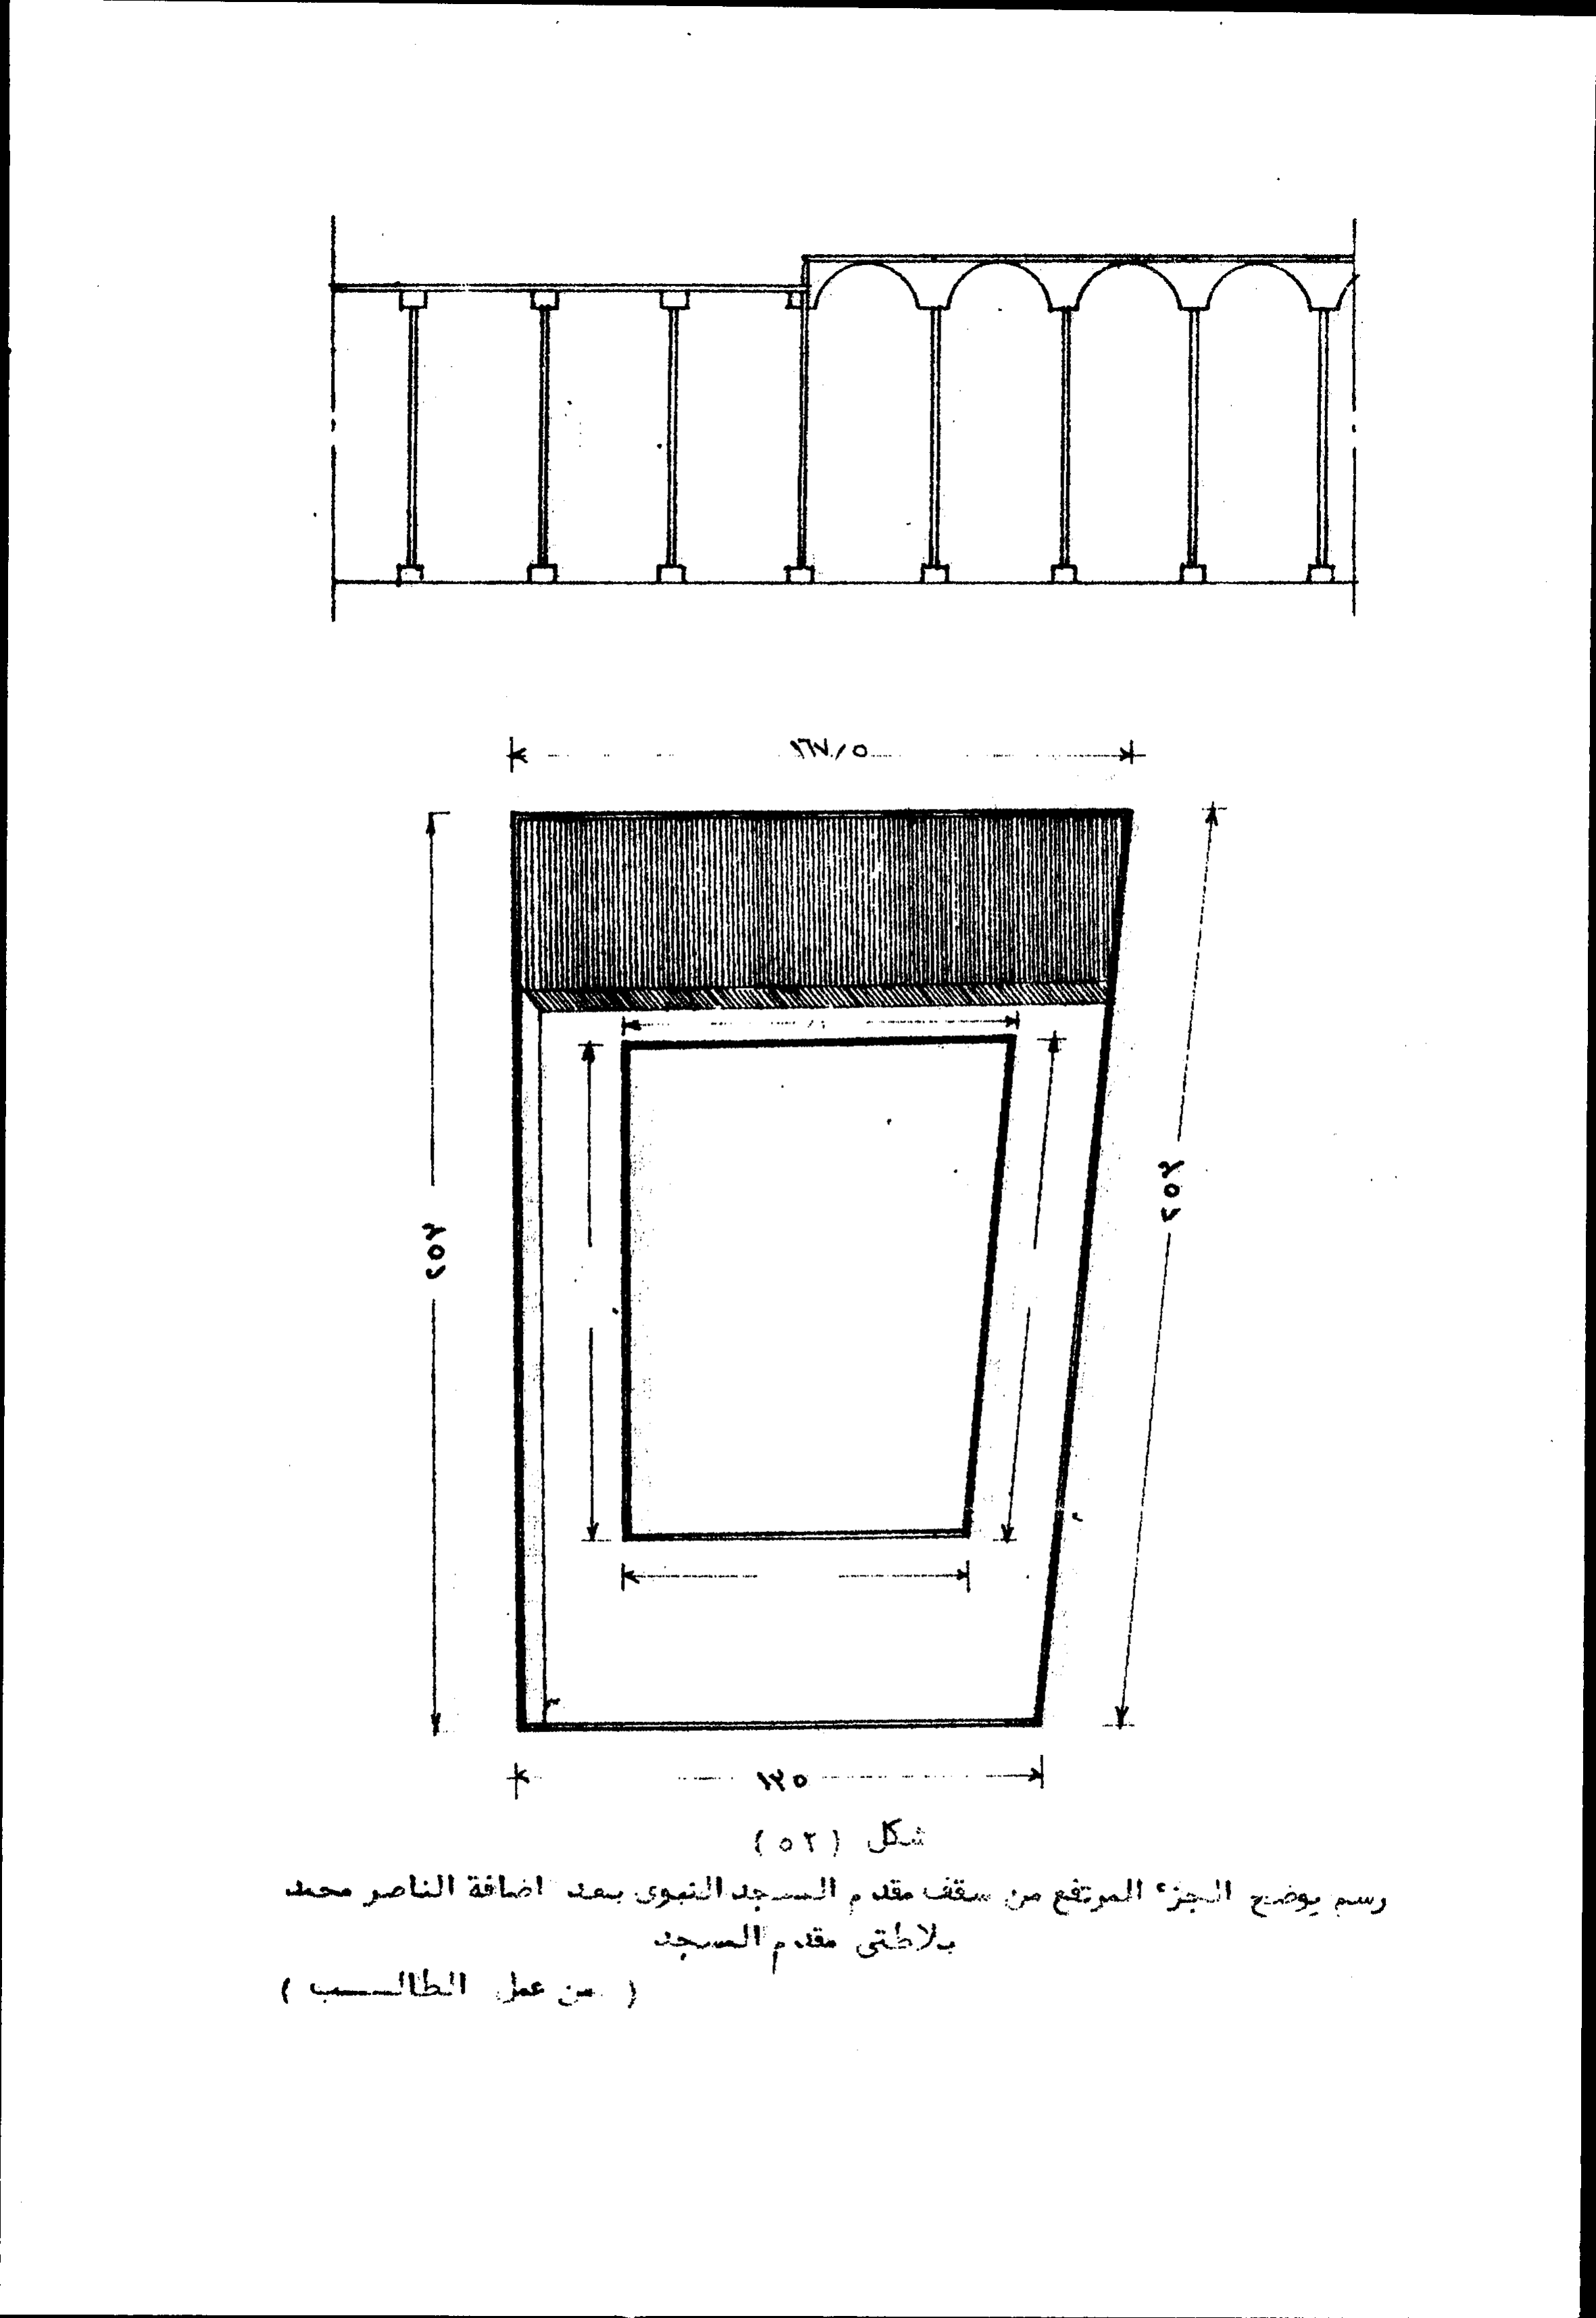 ١٦٧/٥
٢٥٢
٢٥٢
١٢٥
شكل (٥٢)
رسم يوضح الجزء المرتفع من سقف مقدم المسجد النبوى بعد اضافة الناصر محمد
بلاطتى مقدم المسجد
( من عمل الطالــــب )